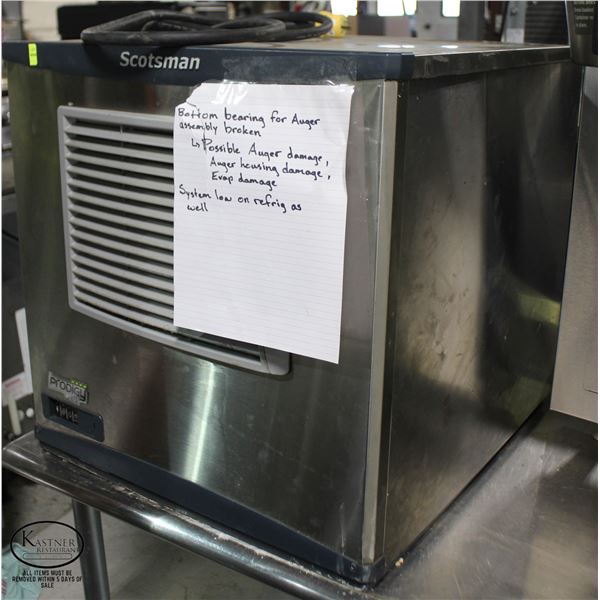 Scotsman
Bottom bearing for Auger
assembly broken
↳ Possible Auger damage,
Auger housing damage,
Evap damage
System low on refrig as
well
PRODIGY
KASTNER
RESTAURANT
ALL ITEMS MUST BE
REMOVED WITHIN 5 DAYS OF
SALE